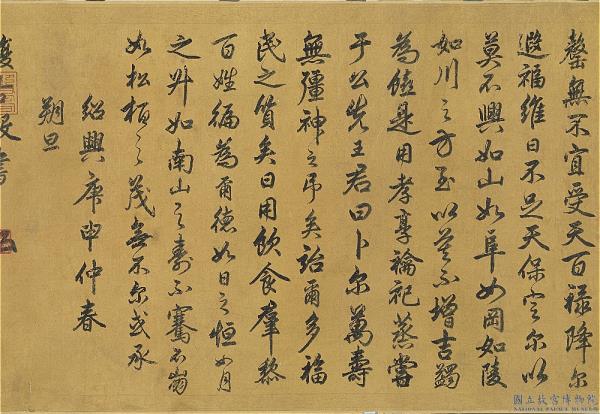 罄無不宜受天百祿降尔
遐福維日不足天保定尔以
莫不興如山如阜如岡如陵
如川之方至以莫不增吉蠲
為饎是用孝享禴祀蒸嘗
于公先王君曰卜尔萬壽
無疆神之弔矣詒爾多福
民之質矣日用飲食羣黎
百姓徧為爾德如日之恒如月
之升如南山之壽不騫不崩
如松栢之茂無不尔或承
紹興庚申仲春
朔旦
國立故宮博物院
NATIONAL PALACE MUSEUM